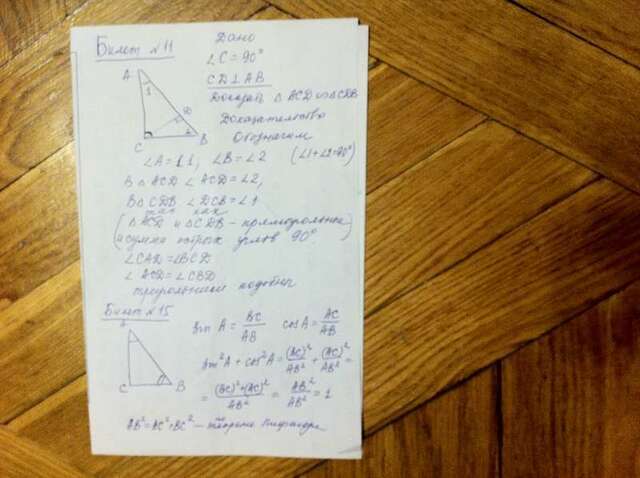 Билет №11
Дано
∠C = 90°
CD ⊥ AB
Доказать △ ACD ∾ △ CDB
Доказательство
Обозначим
A
1
D
2
C
B
∠A = ∠1, ∠B = ∠2 (∠1+∠2=90°)
В △ ACD ∠ ACD = ∠2,
В △ CDB ∠ DCB = ∠1
так как
(△ ACD и △ CDB – прямоугольные
и сумма острых углов 90°)
∠CAD = ∠BCD
∠ ACD = ∠CBD
треугольники подобны
Билет №15
A
C
B
sin A = BC/AB cos A = AC/AB
sin²A + cos²A = (BC)²/AB² + (AC)²/AB² =
= (BC)²+(AC)²/AB² = AB²/AB² = 1
AB² = AC² + BC² – теорема Пифагора